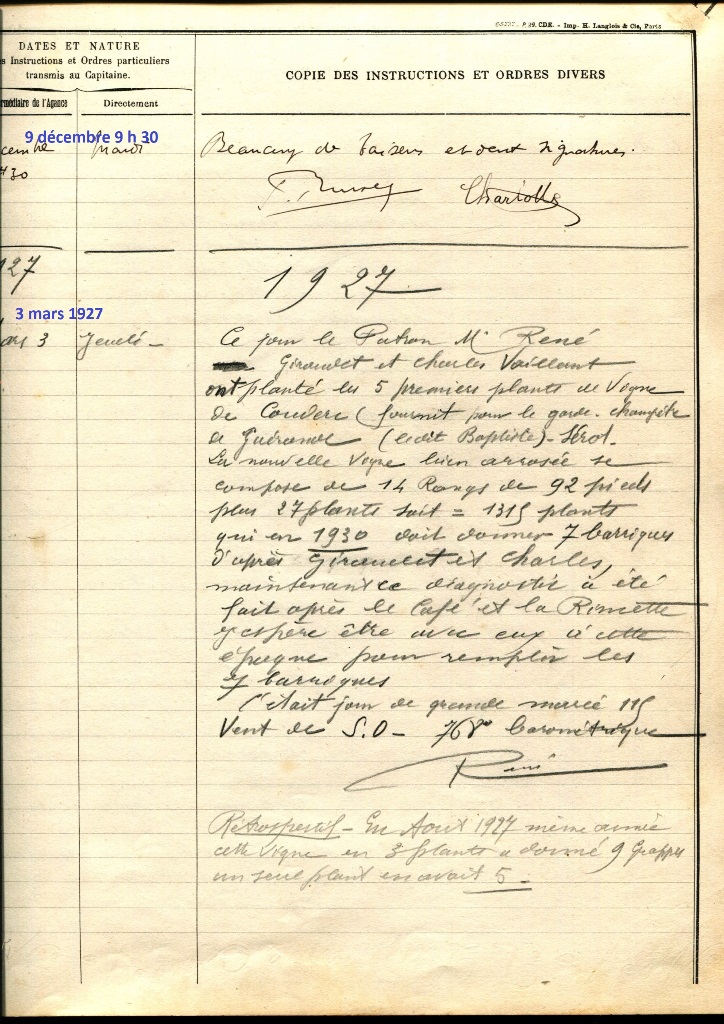 65727 - P. 29. CDE. - Imp. H. Langlois & Cie, Paris
DATES ET NATURE
s Instructions et Ordres particuliers
transmis au Capitaine.
COPIE DES INSTRUCTIONS ET ORDRES DIVERS
rmédiaire de l'Agence
Directement
9 décembre 9 h 30
cembre
Mardi
Beaucoup de baisers et deux signatures.
30
Charlotte
27
1927
3 mars 1927
ars 3
Jeudi -
Ce jour le Patron Mr René
Giraudet et Charles Vaillant
ont planté les 5 premiers plants de Vigne
de Couderc (fournit pour le garde-champête
de Guérande (ledit Baptiste) -
La nouvelle Vigne bien arrosée se
compose de 14 Rangs de 92 pieds
plus 27 plants soit = 1315 plants
qui en 1930 doit donner 7 barriques
d'après Giraudet et Charles,
maintenant ce diagnostic a été
fait après le Café et la Rincette
J'espère être avec eux à cette
époque pour remplir les
7 barriques
C'était jour de grande marée 115
Vent de S.O - 768 barométrique
René
Rétrospectif - En Aout 1927 même année
cette Vigne en 3 plants a donné 9 Grappes
un seul plant en avait 5 -